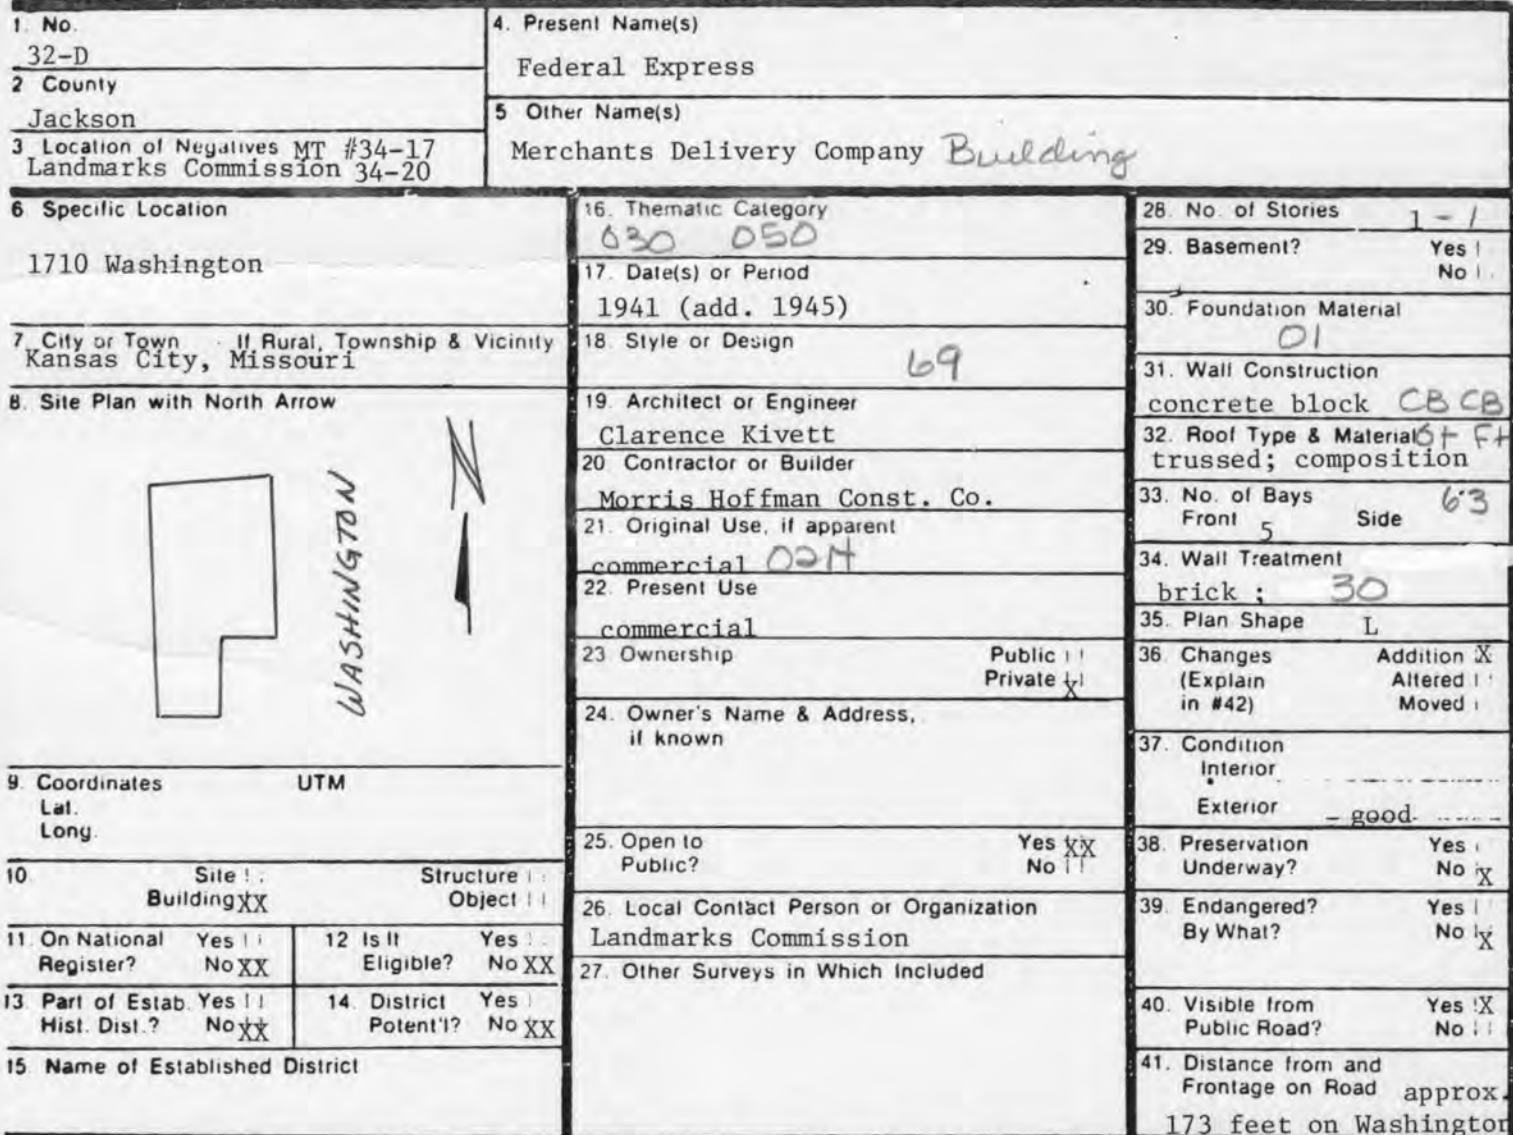 1. No.
32-D
2 County
Jackson
3 Location of Negatives MT #34-17
Landmarks Commission 34-20
4. Present Name(s)
Federal Express
5 Other Name(s)
Merchants Delivery Company Building
6 Specific Location
1710 Washington
7. City or Town If Rural, Township & Vicinity
Kansas City, Missouri
8. Site Plan with North Arrow
N
WASHINGTON
9. Coordinates UTM
Lat.
Long.
10. Site Structure
Building XX Object
11. On National Yes
Register? No XX
12 Is It Yes
Eligible? No XX
13 Part of Estab. Yes
Hist. Dist.? No XX
14. District Yes
Potent'l? No XX
15 Name of Established District
16. Thematic Category
030 050
17. Date(s) or Period
1941 (add. 1945)
18. Style or Design
69
19. Architect or Engineer
Clarence Kivett
20 Contractor or Builder
Morris Hoffman Const. Co.
21. Original Use, if apparent
commercial 02H
22. Present Use
commercial
23 Ownership Public
Private X
24. Owner's Name & Address,
if known
25. Open to Yes XX
Public? No
26. Local Contact Person or Organization
Landmarks Commission
27. Other Surveys in Which Included
28. No. of Stories 1 - 1
29. Basement? Yes
No
30. Foundation Material
01
31. Wall Construction
concrete block CB CB
32. Roof Type & Material Ft
trussed; composition
33. No. of Bays 63
Front 5 Side
34. Wall Treatment
brick ; 30
35. Plan Shape L
36. Changes Addition X
(Explain Altered
in #42) Moved
37. Condition
Interior
Exterior good
38. Preservation Yes
Underway? No X
39. Endangered? Yes
By What? No X
40. Visible from Yes X
Public Road? No
41. Distance from and
Frontage on Road approx.
173 feet on Washington